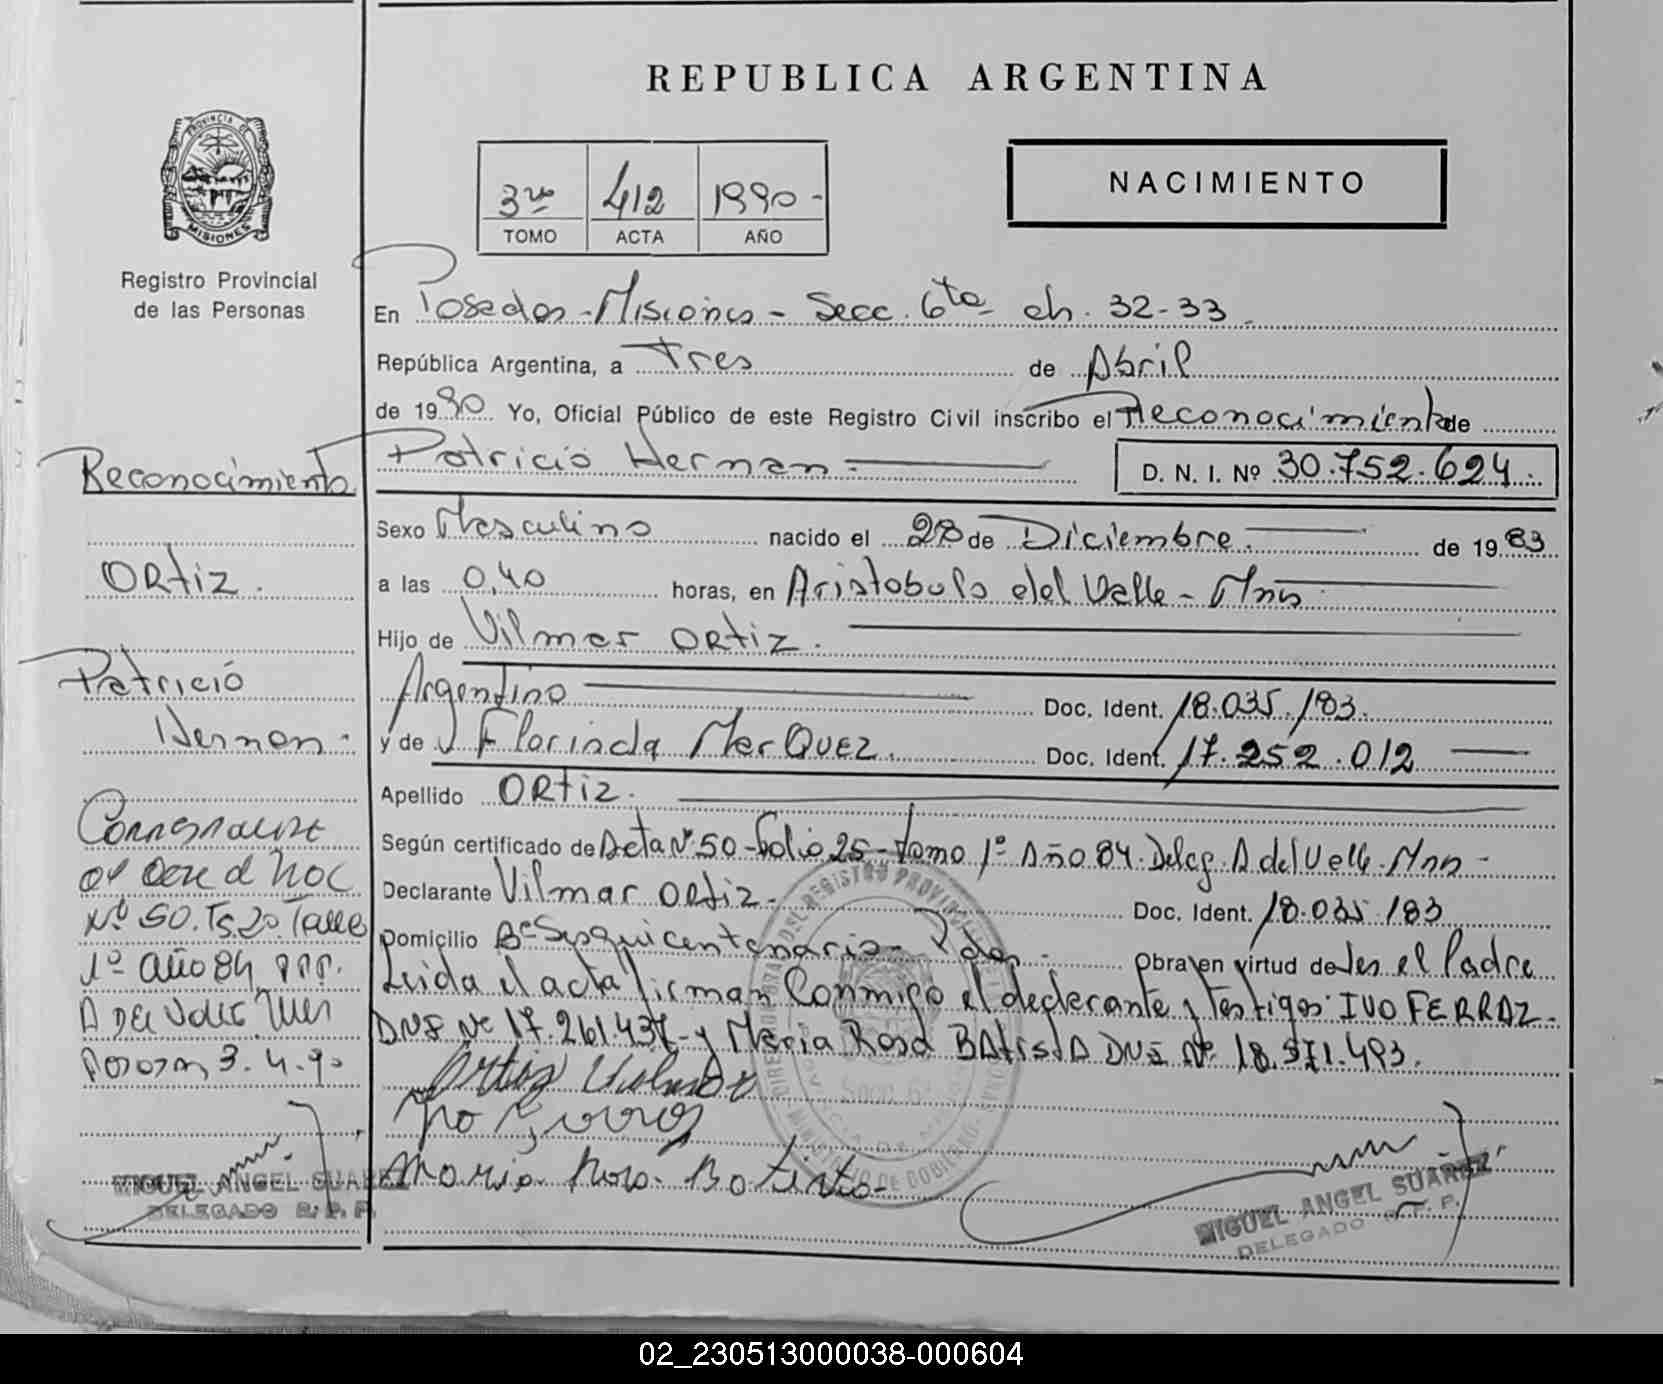 REPUBLICA ARGENTINA
PROVINCIA DE
MISIONES
Registro Provincial
de las Personas
3ro 412 1990-
TOMO ACTA AÑO
NACIMIENTO
En Posadas - Misiones - Secc. 6ta ch. 32-33
República Argentina, a Tres de Abril
de 1990 Yo, Oficial Público de este Registro Civil inscribo el Reconocimiento de
Patricio Hernan
D. N. I. Nº 30.752.624.
Sexo Masculino nacido el 28 de Diciembre. de 1983
a las 0,40 horas, en Aristobulo del Valle - Mnes
Hijo de Vilmar ORtiz.
Argentino Doc. Ident. 18.035.183.
y de Florinda MarQUEZ. Doc. Ident. 17.252.012
Apellido ORtiz.
Según certificado de Acta Nº 50 - Folio 25 - Tomo 1º Año 84. Deleg. A del Valle. Mnes -
Declarante Vilmar ORtiz. Doc. Ident. 18.035.183
Domicilio Bº Sesquicentenario - Pdas. Obra en virtud de ser el Padre
Leida el acta firman conmigo el declarante y testigos: IVO FERRAZ.
DNI Nº 17.261.437 - y Maria Rosa BAtistA DNI Nº 18.571.493.
Ortiz Vilmar
Ivo Ferraz
Maria Rosa Batista
MIGUEL ANGEL SUAREZ
DELEGADO R. P. P.
Reconocimiento
ORtiz.
Patricio
Hernan.
Nº 50.
1º año 84
A del Valle
3.4.90
MIGUEL ANGEL SUAREZ
DELEGADO R. P. P.
Secc. 6ª
02_230513000038-000604